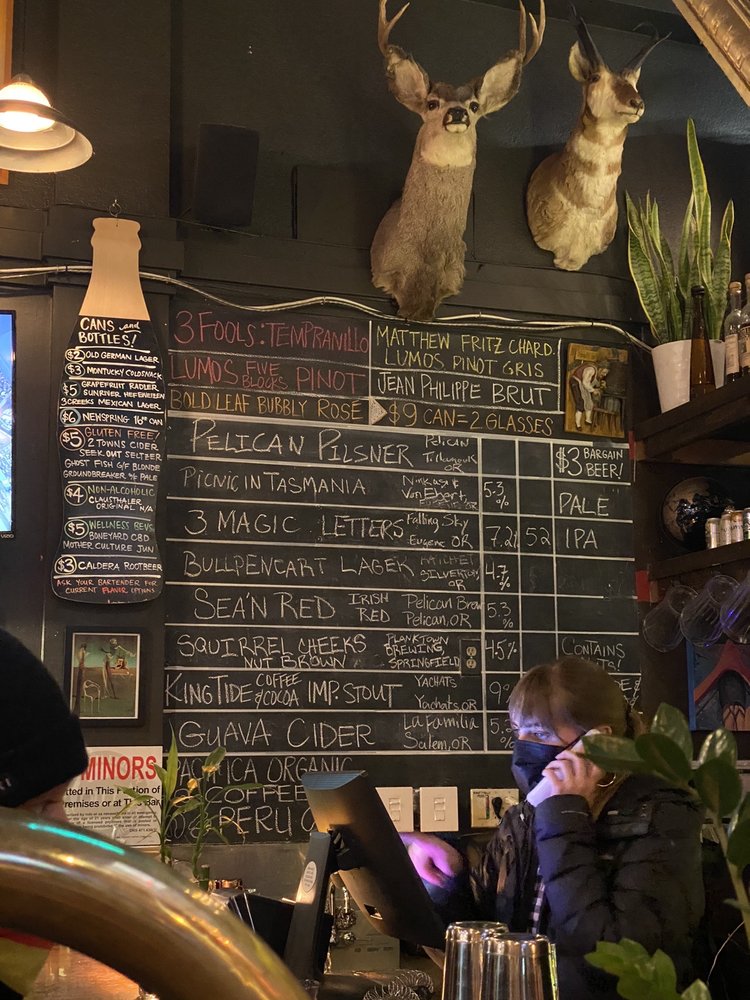 CANS and
BOTTLES!
$2 OLD GERMAN LAGER
$3 MONTUCKY COLDSNACK
$5 GRAPEFRUIT RADLER
SUNRIVER HEFEWEIZEN
3 CREEKS MEXICAN LAGER
$6 NEWSPRING 16oz CAN
$5 GLUTEN FREE
2 TOWNS CIDER
SEEK OUT SELTZER
GHOST FISH G/F BLONDE
GROUNDBREAKER G/F PALE
$4 NON-ALCOHOLIC
CLAUSTHALER
ORIGINAL N/A
$5 WELLNESS BEVS
BONEYARD CBD
MOTHER CULTURE JUN
$3 CALDERA ROOTBEER
ASK YOUR BARTENDER FOR
CURRENT FLAVOR OPTIONS
3 FOOLS: TEMPRANILLO
LUMOS FIVE BLOCKS PINOT
BOLD LEAF BUBBLY ROSÉ
MATTHEW FRITZ CHARD
LUMOS PINOT GRIS
JEAN PHILIPPE BRUT
$9 CAN=2 GLASSES
PELICAN PILSNER Pelican OR $3 BARGAIN BEER!
PICNIC IN TASMANIA 5.3% PALE
3 MAGIC LETTERS Falling Sky Eugene OR 7.2 52 IPA
BULLPENCART LAGER SILVERTON, OR 4.7%
SEA'N RED IRISH RED Pelican Brew Pelican, OR 5.3%
SQUIRREL CHEEKS NUT BROWN PLANKTOWN BREWING, SPRINGFIELD 4.5% CONTAINS
KING TIDE COFFEE & COCOA IMP. STOUT YACHATS Yachats, OR 9
GUAVA CIDER La Familia Salem, OR 5.
ORGANIC
COFFEE
PERU
MINORS